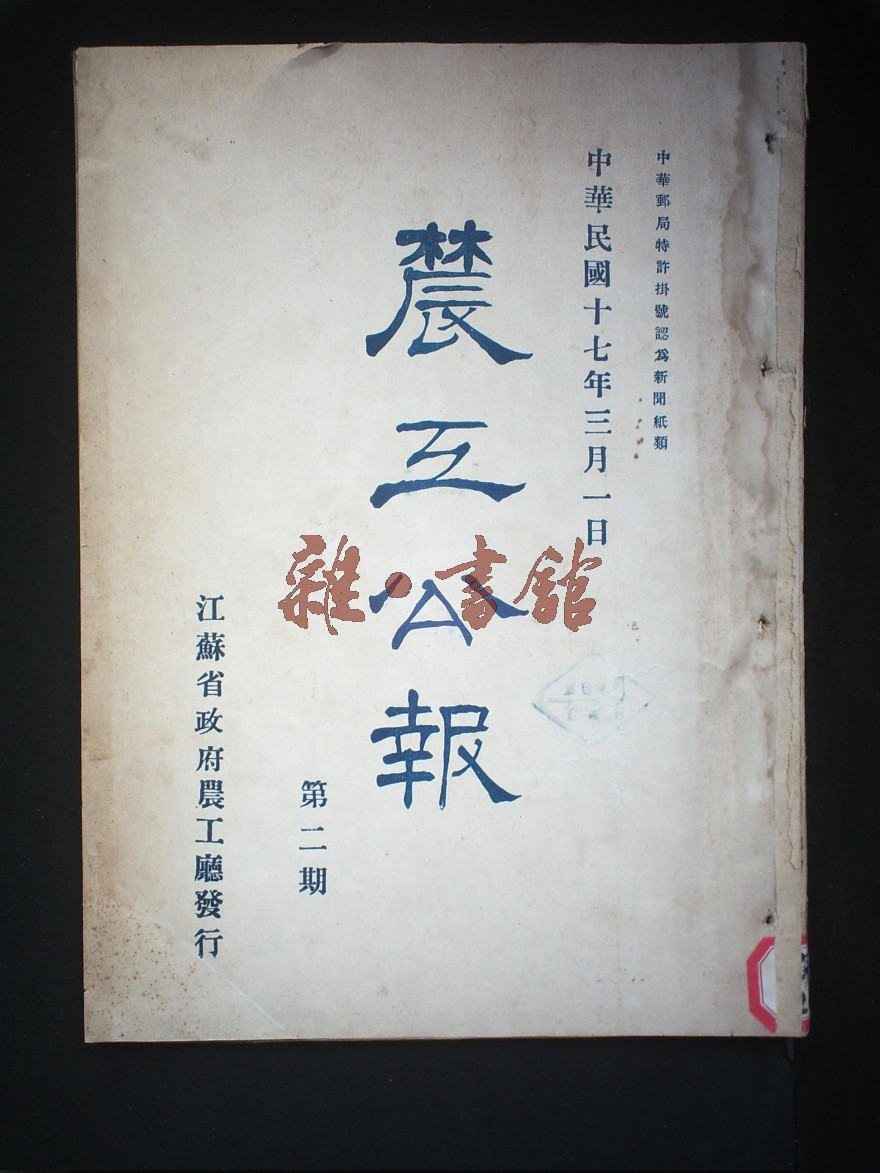 中華郵局特許掛號認爲新聞紙類
中華民國十七年三月一日
農工公報
第二期
江蘇省政府農工廳發行
雜·書館